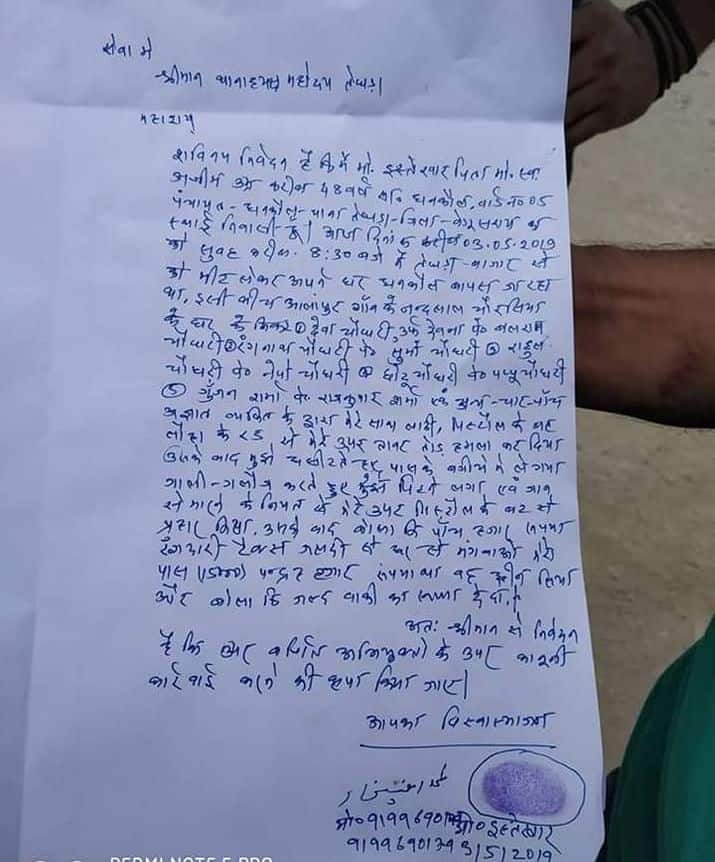 सेवा मे
श्रीमान थानाध्यक्ष महोदय तेघड़ा
महाशय
सविनय निवेदन है कि मैं मो. इस्तेखार पिता मो. स्व.
अजीम उम्र करीब 48 वर्ष सा० धनकौल, वार्ड न० 05
पंचायत - धनकौल - थाना तेघड़ा - जिला - बेगूसराय का
स्थाई निवासी हूँ। आज दिनांक करीब 03.05.2019
को सुवह करीब. 8:30 बजे में तेघड़ा - बाजार से
को मीट लेकर अपने घर धनकौल वापस जा रहा
था, इसी बीच आलापुर गाँव के नन्दलाल चौरसिया
के घर के निकट ① देवा चौधरी, उर्फ देवना पे० बलराम
चौधरी ② रंगनाथ चौधरी पे० सुमो चौधरी ③ राहुल
चौधरी पे० नेपो चौधरी ④ छोटू चौधरी पे० पप्पू चौधरी
⑤ गुँजन शर्मा पे० राजकुमार शर्मा एवं अन्य - चार - पाँच
अज्ञात व्यक्ति के द्वारा मेरे साथ लाठी, पिस्टौल के बट
लोहा के रड से मेरे उपर जान लेवा हमला कर दिया
उसके बाद मुझे घसीटते हुए पास के बगीचे मे ले गया
गाली - गलौज करते हुए मुझे पिटने लगा एवं जान
से मारने के नियत से मेरे उपर पिस्टौल के बट से
प्रहार किया, उसके बाद बोला कि पाँच हजार रूपया
रंगदारी टैक्स जल्दी से घर से मंगवाओ मेरे
पास (15000) पन्द्रह हजार रूपया था वह छीन लिया
और बोला कि जल्द बाकी का रूपया दे दो।
अतः - श्रीमान से निवेदन
है कि उपर वर्णित अभियुक्तो के उपर कानूनी
कार्रवाई करने की कृपा किया जाए।
आपका विस्वासभाजन
मो० इस्तेखार
मो० 9199690139
9199690139 3/5/2019
REDMI NOTE 5 PRO